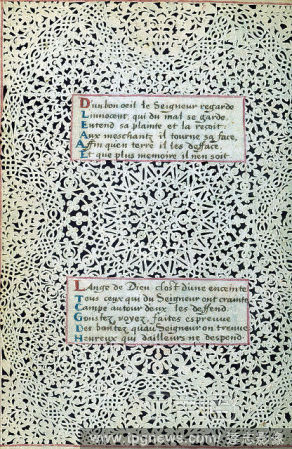 Dun bon oeil le Seigneur regarde
Linnocent, qui du mal se garde.
Entend sa plainte et la reçoit:
Aux meschantz il tourne sa face,
Affin quen terre il les defface,
Et que plus memoire il nen soit
Lange de Dieu clost dune enceinte
Tous ceux qui du Seigneur ont crainte
Campe autour deux les deffend
Goustez, voyez, faites espreuve
Des bontez quau Seigneur on treuve
Heureux qui dailleurs ne despend
www.ipgnews.com